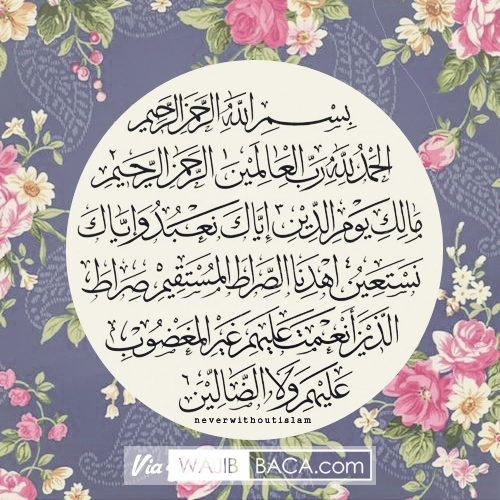 بِسْمِ اللَّهِ الرَّحْمَنِ الرَّحِيمِ
الْحَمْدُ لِلَّهِ رَبِّ الْعَالَمِينَ الرَّحْمَنِ الرَّحِيمِ ٢
مَالِكِ يَوْمِ الدِّينِ ٣ إِيَّاكَ نَعْبُدُ وَإِيَّاكَ
نَسْتَعِينُ اهْدِنَا الصِّرَاطَ الْمُسْتَقِيمَ صِرَاطَ
الَّذِينَ أَنْعَمْتَ عَلَيْهِمْ غَيْرِ الْمَغْضُوبِ
عَلَيْهِمْ وَلَا الضَّالِّينَ ٦
neverwithoutislam
Via WAJIB BACA.com